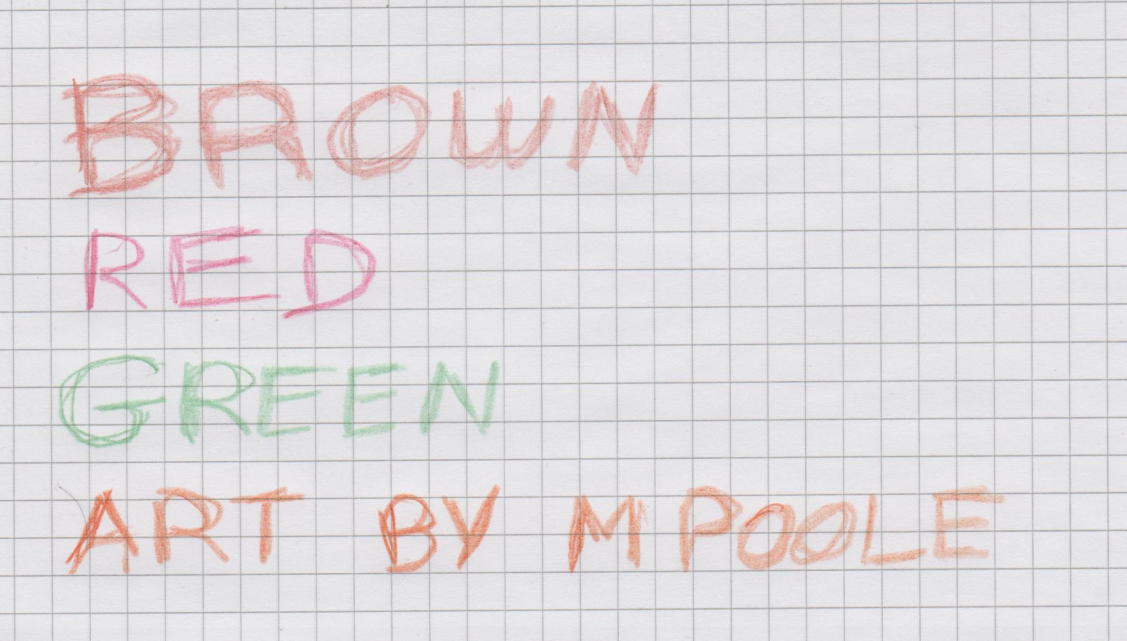 BROWN
RED
GREEN
ART BY M POOLE